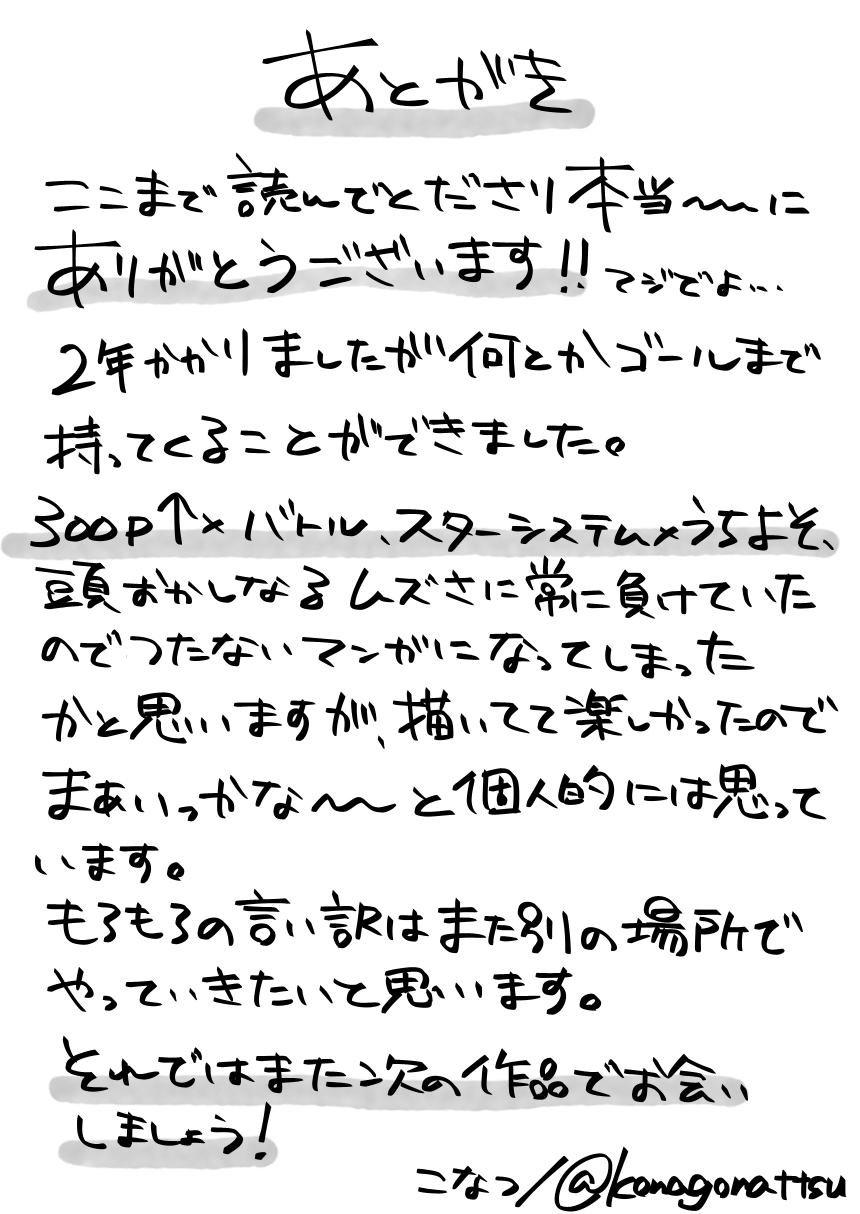 あとがき
ここまで読んでくださり本当〜〜に
ありがとうございます!!マジでよ...
2年かかりましたが何とかゴールまで
持ってくることができました。
300P↑×バトル、スターシステム×うちよそ、
頭おかしなるムズさに常に負けていた
のでつたないマンガになってしまった
かと思いますが、描いてて楽しかったので
まぁいっかな〜〜と個人的には思って
います。
もろもろの言い訳はまた別の場所で
やっていきたいと思います。
それではまた次の作品でお会い
しましょう!
こなつ/@konagonattsu